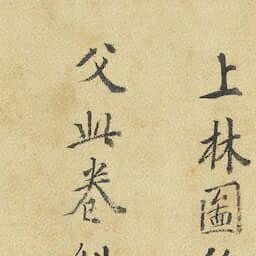 上林圖
父此卷